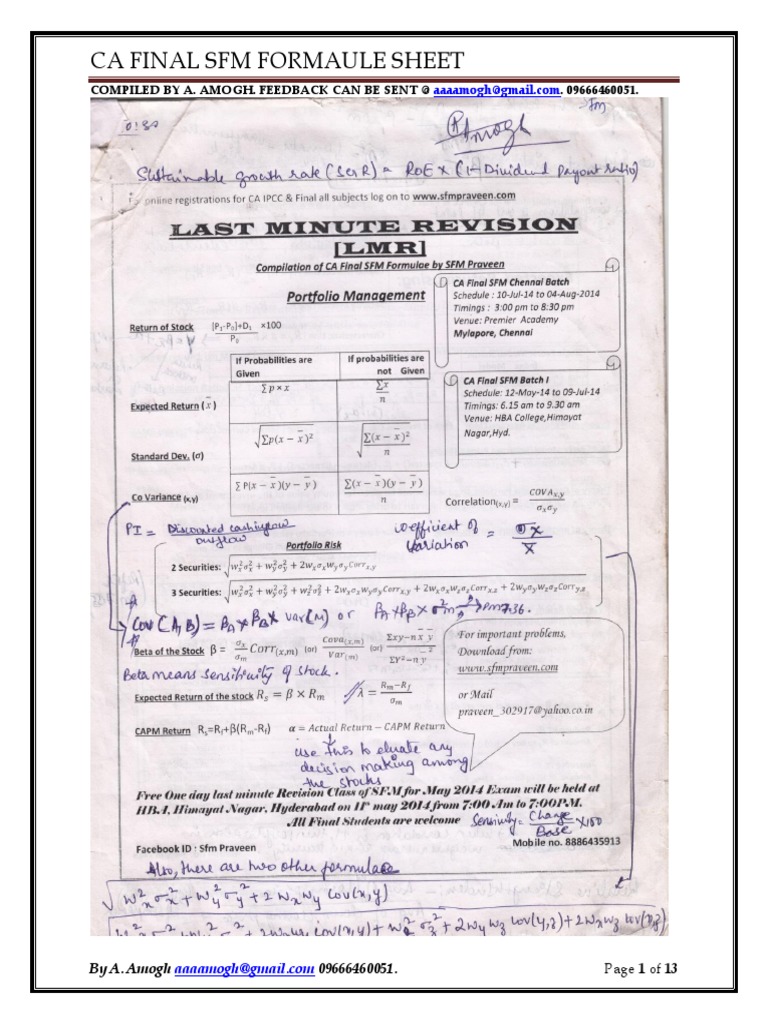 CA FINAL SFM FORMAULE SHEET
COMPILED BY A. AMOGH. FEEDBACK CAN BE SENT @ aaaamogh@gmail.com. 09666460051.
Amogh
Sustainable growth rate (SGR) = ROE x (1-Dividend payout ratio)
online registrations for CA IPCC & Final all subjects log on to www.sfmpraveen.com
LAST MINUTE REVISION
[LMR]
Compilation of CA Final SFM Formulae by SFM Praveen
Portfolio Management
CA Final SFM Chennai Batch
Schedule : 10-Jul-14 to 04-Aug-2014
Timings : 3:00 pm to 8:30 pm
Venue: Premier Academy
Mylapore, Chennai
Return of Stock [P₁-P₀]+D₁ / P₀ ×100
If Probabilities are Given
If probabilities are not Given
Expected Return (x̄)
∑ p × x
∑x / n
CA Final SFM Batch I
Schedule: 12-May-14 to 09-Jul-14
Timings: 6.15 am to 9.30 am
Venue: HBA College,Himayat
Nagar,Hyd.
Standard Dev. (σ)
√∑p(x − x̄)²
√∑(x − x̄)² / n
Co Variance (x,y)
∑ P(x − x̄)(y − ȳ)
∑(x − x̄)(y − ȳ) / n
Correlation(x,y) = COVAx,y / σxσy
PI = Discounted cash inflow / outflow
Coefficient of variation = σx / x̄
Portfolio Risk
2 Securities: √wx²σx² + wy²σy² + 2wxσxwyσyCorrx,y
3 Securities: √wx²σx² + wy²σy² + wz²σz² + 2wxσxwyσyCorrx,y + 2wxσxwzσzCorrx,z + 2wyσywzσzCorry,z
Cov(A,B) = βA x βB x var(M) or βA x βB x σ²m
For important problems,
Download from:
www.sfmpraveen.com
or Mail
praveen_302917@yahoo.co.in
Beta of the Stock β = σx / σm Corr(x,m) (or) Cova(x,m) / Var(m) (or) Σxy−n x̄ ȳ / ΣY²−n ȳ²
Beta means sensitivity of stock.
Expected Return of the stock Rs = β × Rm // λ = Rm−Rf / σm
CAPM Return Rs=Rf+β(Rm-Rf) α = Actual Return − CAPM Return
use this to eluate any
decision making among
the stocks
Free One day last minute Revision Class of SFM for May 2014 Exam will be held at
HBA, Himayat Nagar, Hyderabad on 11ᵗʰ may 2014 from 7:00 Am to 7:00PM.
All Final Students are welcome
Sensivity = Change / Base x100
Facebook ID : Sfm Praveen
Mobile no. 8886435913
Also, there are two other formulae
√wx²σx² + wy²σy² + 2wxwy cov(x,y)
By A. Amogh aaaamogh@gmail.com 09666460051.
Page 1 of 13